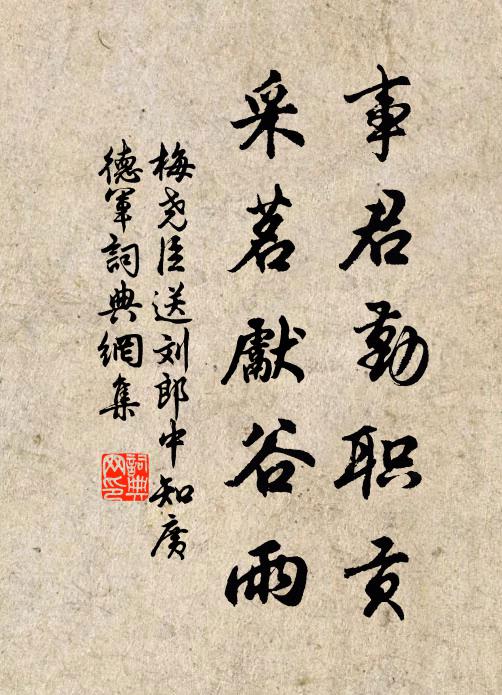 事君勤职贡
采茗獻谷雨
梅尧臣送刘郎中知廣
德军詞典網集
詞典
网印